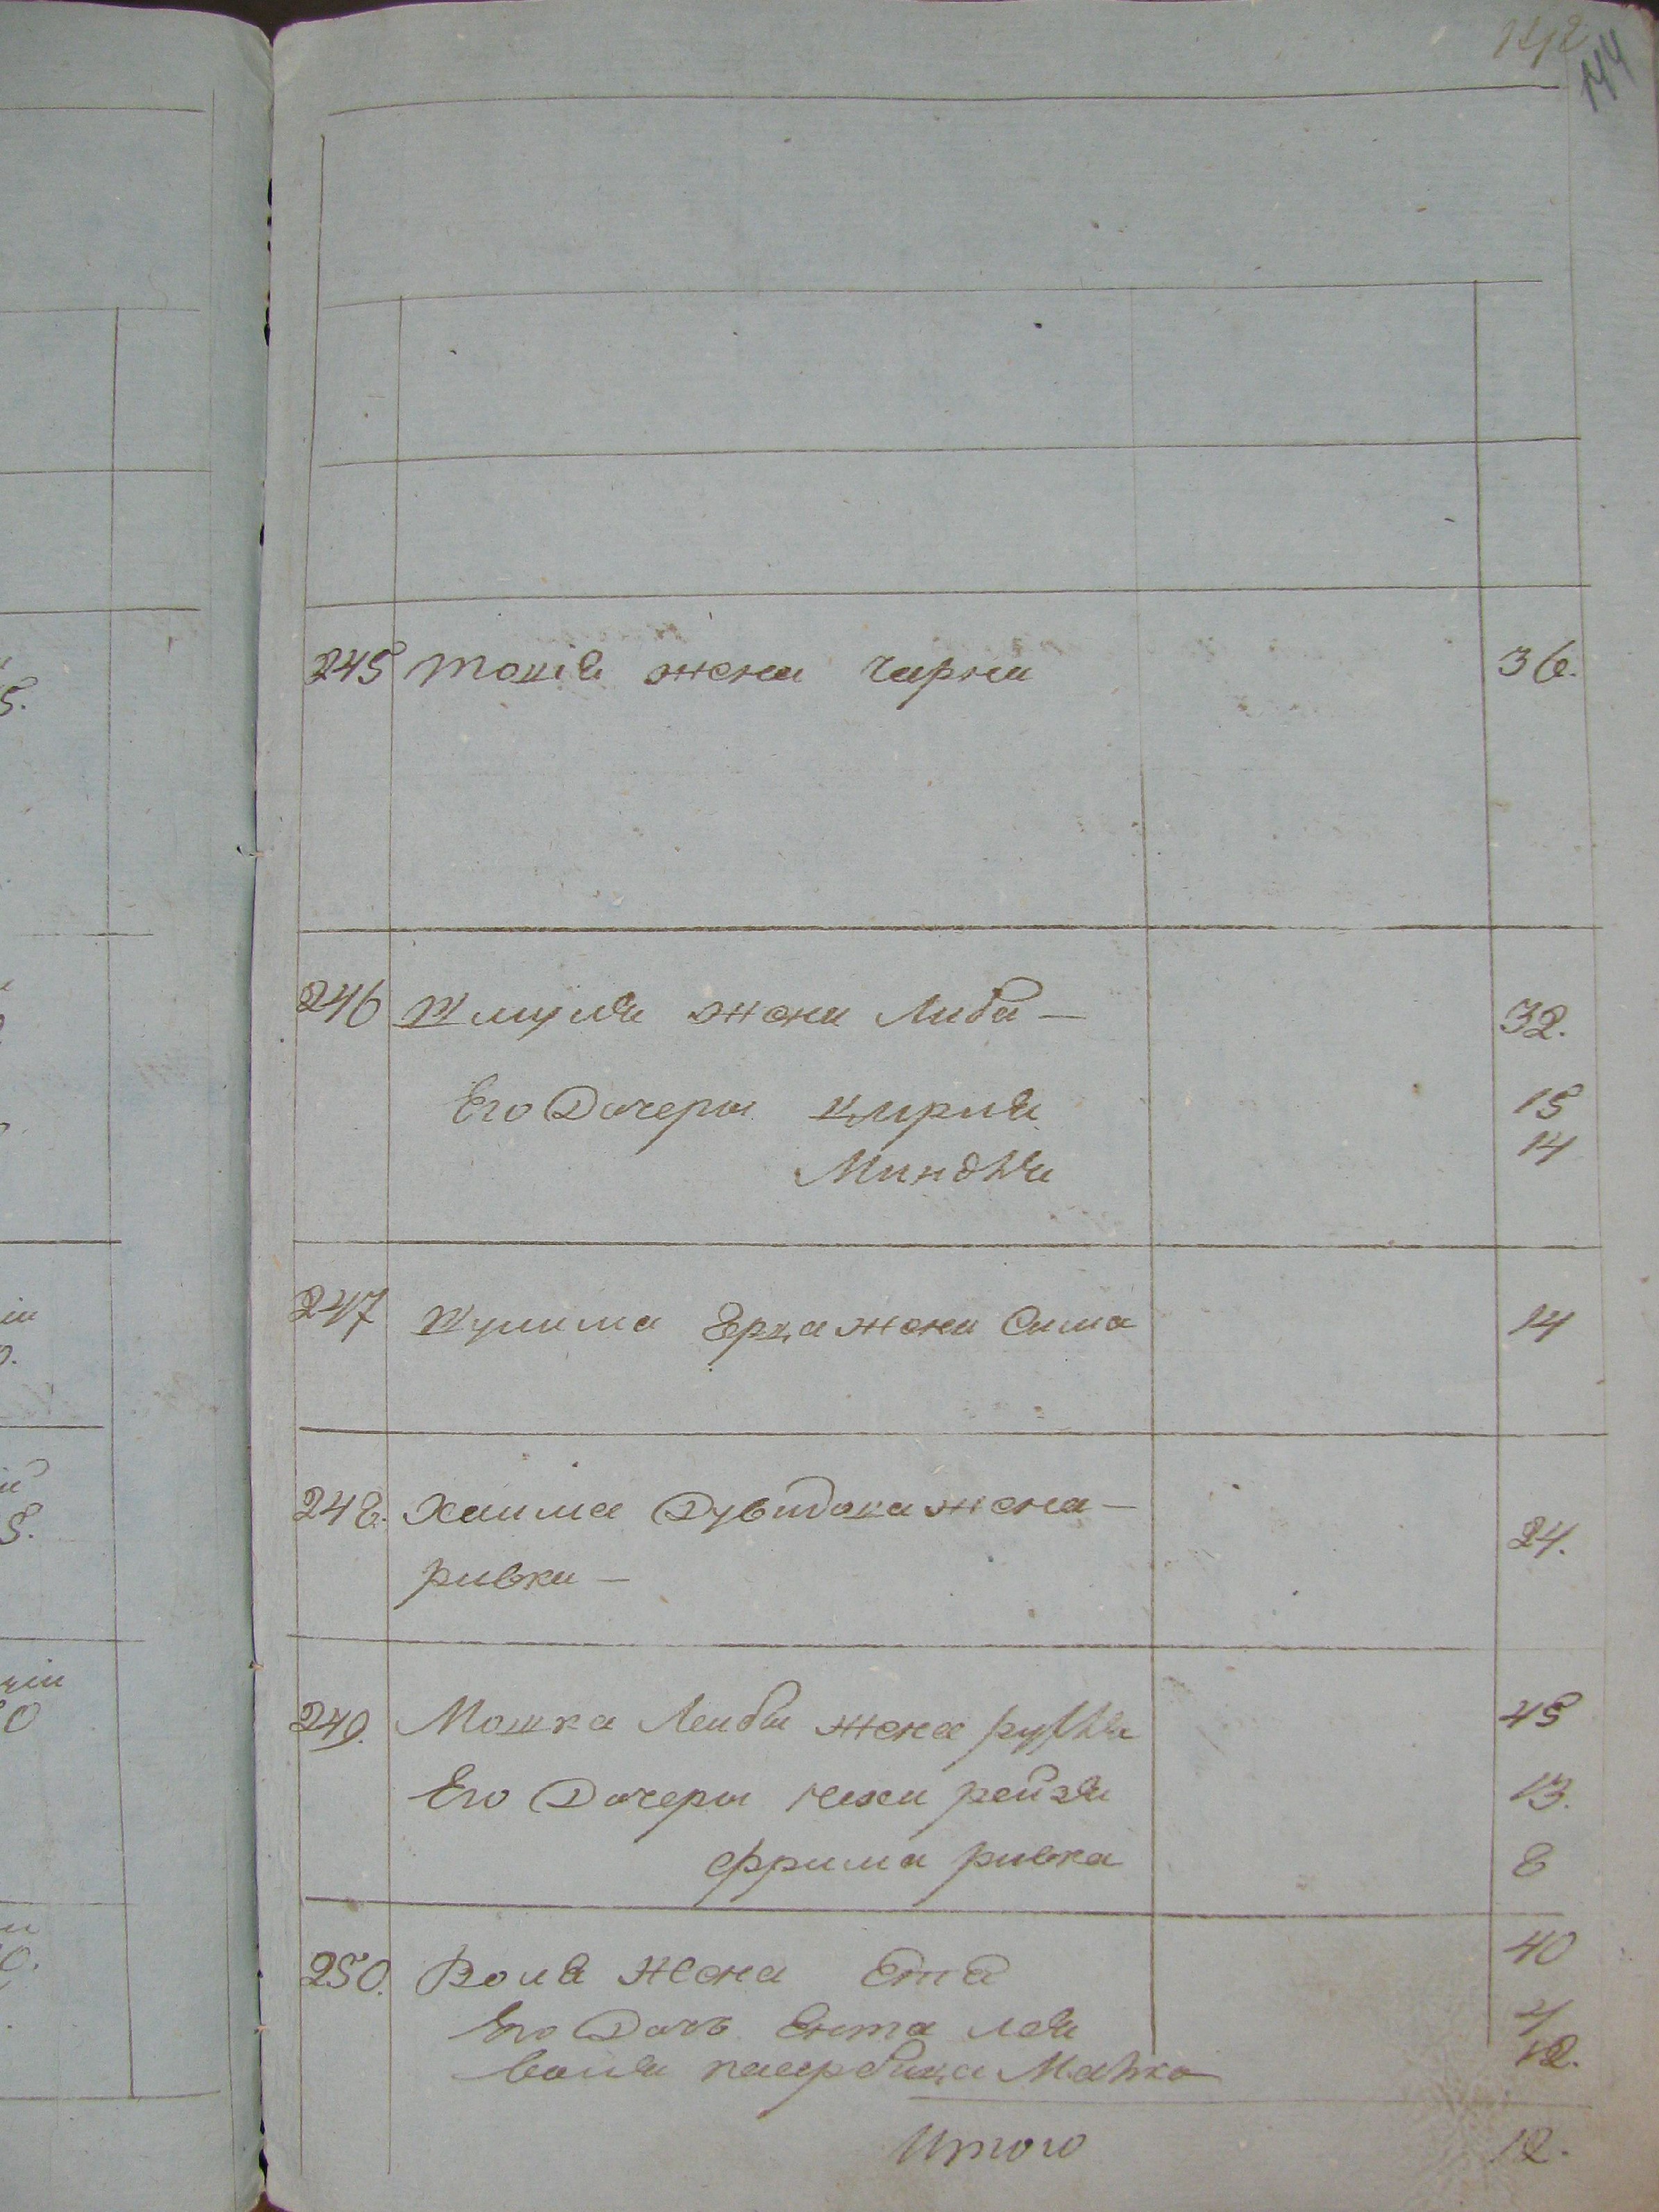 142
144
245 жена Чарна 36.
246 Шмуля жена Либа — 32.
Его Дочеры Цирля 15
Миндля 14
247 Шулима Ерца жена Сима 14
248. Хаима Дувидока жена —
ривка — 24.
249. Мошка Лейбы жена рухля 45
Его Дочеры неха рейзя 13.
фрима ривка 8
250. Воля жена Ета 40
Его Дочь Ента лея 4
Воля Малка 12.
Итого 12.